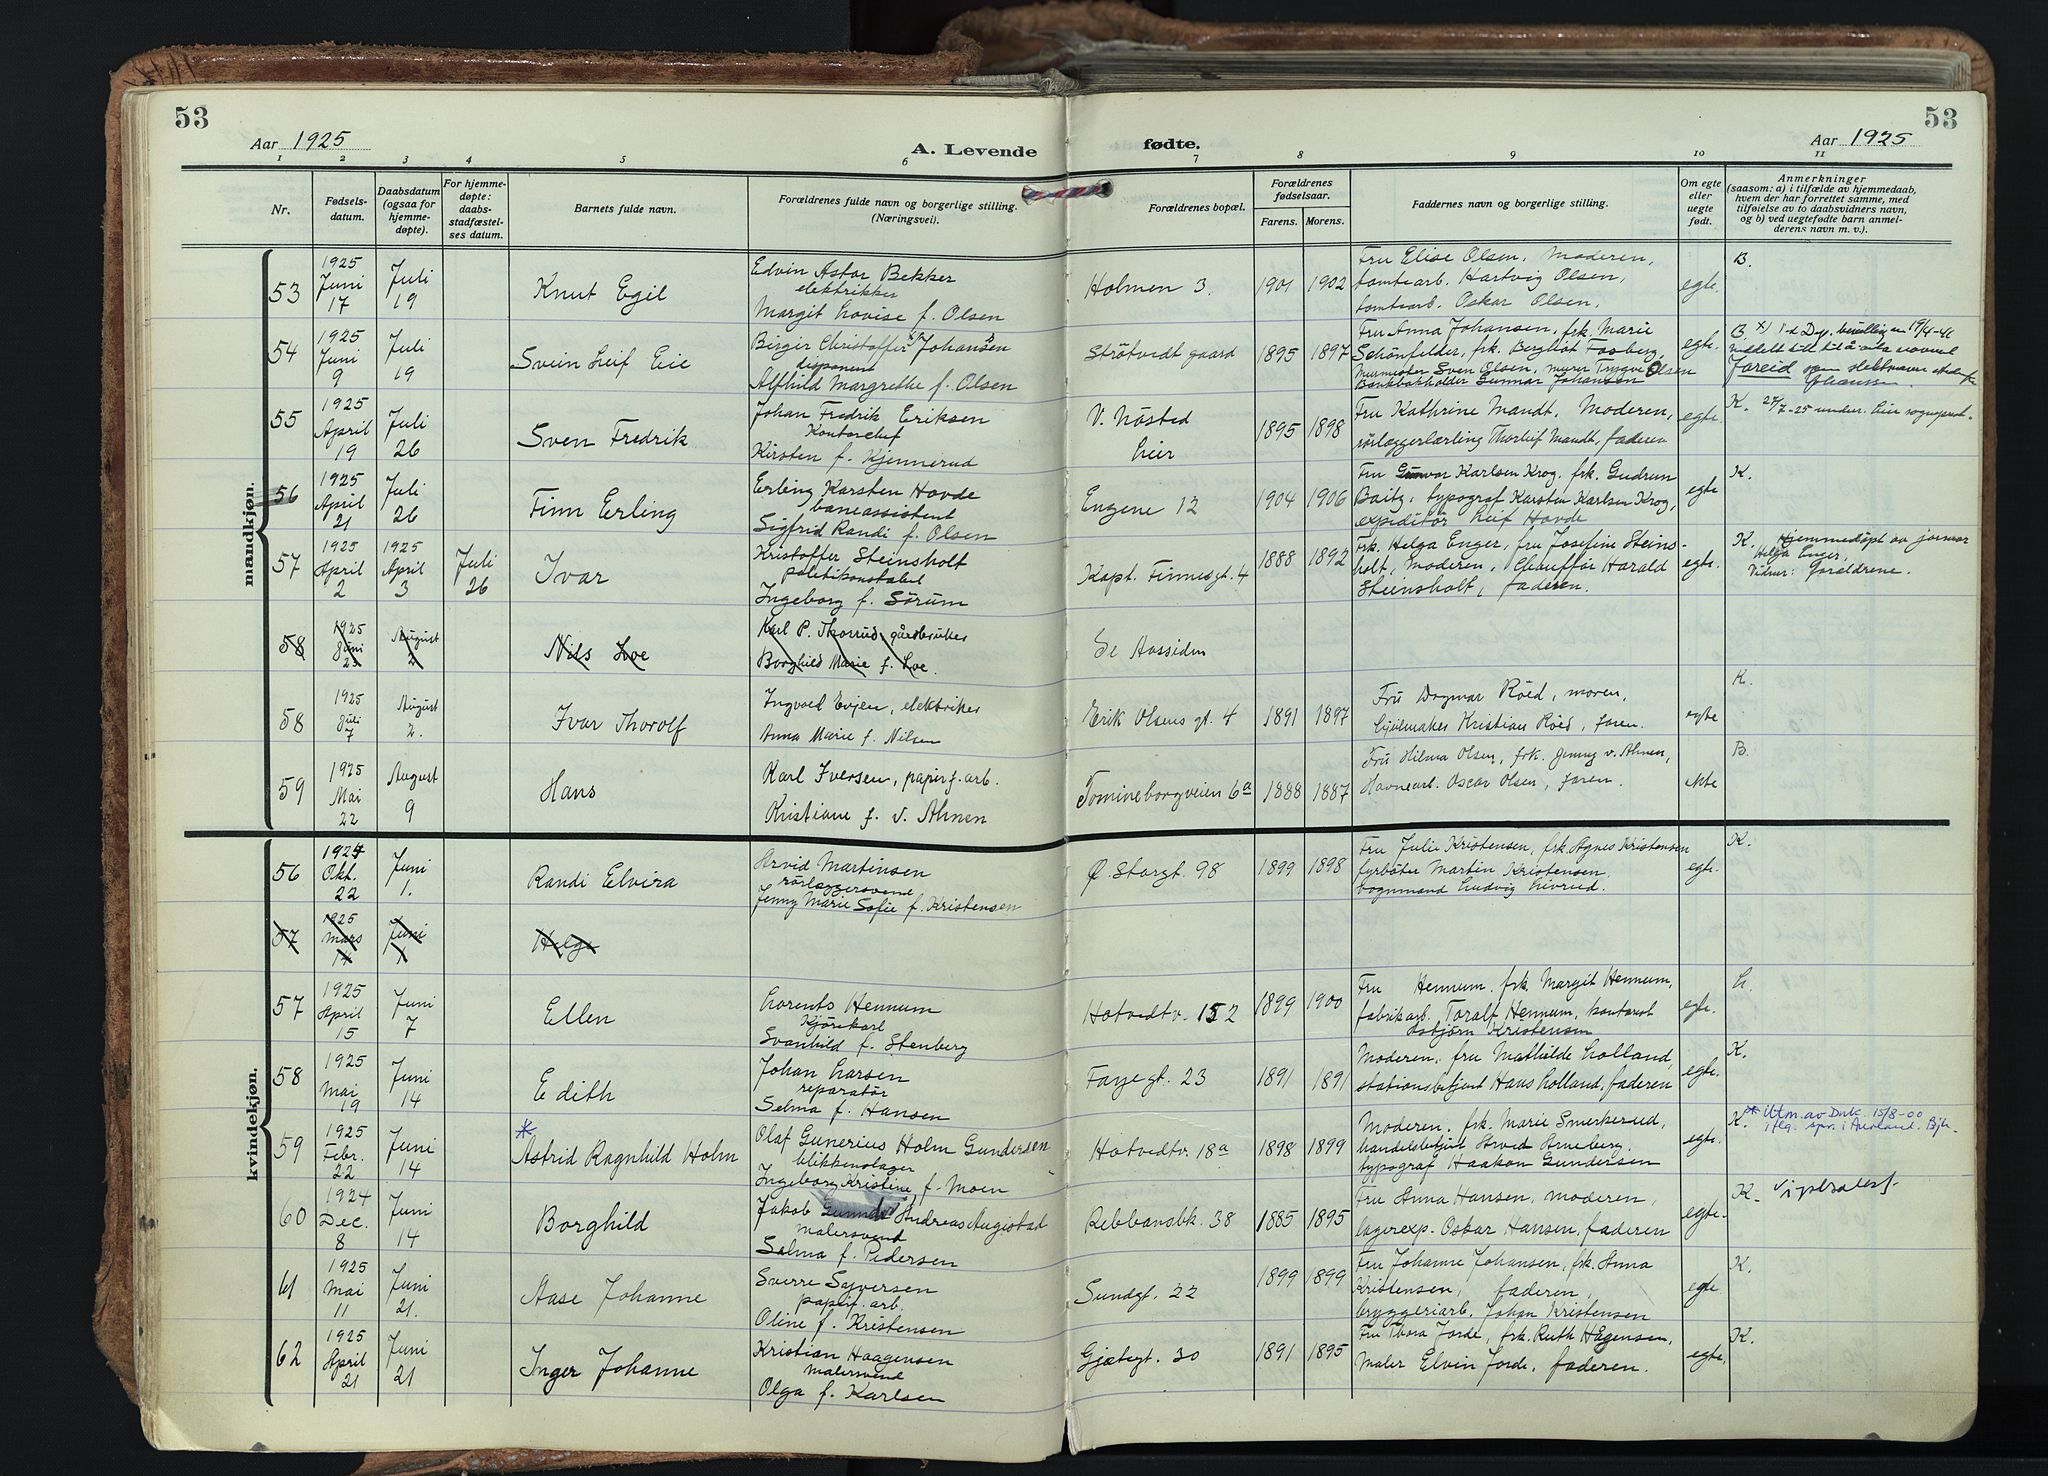 53
53
Aar 1925
A. Levende fødte.
Aar 1925
1 2 3 4 5 6 7 8 9 10 11
Nr.
Fødselsdatum.
Daabsdatum (ogsaa for hjemmedøpte).
For hjemmedøpte: daabsstadfæstelses datum.
Barnets fulde navn.
Forældrenes fulde navn og borgerlige stilling. (Næringsvei).
Forældrenes bopæl.
Forældrenes fødselsaar.
Farens. Morens.
Faddernes navn og borgerlige stilling.
Om egte eller uegte født.
Anmerkninger
(saasom: a) i tilfælde av hjemmedaab,
hvem der har forrettet samme, med
tilføielse av to daabsvidners navn,
og b) ved uegtefødte barn anmelderens navn m. v.).
mandkjøn.
53
1925 Juni 17
Juli 19
Knut Egil
Edvin Astor Bekker
elektrikker
Margit Lovise f. Olsen
Holmen 3.
1901 1902
Fru Elise Olsen, Moderen,
tomtearb. Hartvig Olsen,
tomtearb. Oskar Olsen.
egte.
B.
54
1925 Juni 9
Juli 19
Svein Leif Eie
Birgir Christoffer x) Johansen
disponent
Alfhild Margrethe f. Olsen
Strøtvedt gaard
1895 1897
Fru Anna Johansen, frk. Marie
Schönfelder, frk. Berghot Fosberg,
Murmester Sven Olsen, murer Trygve Olsen
Bankbokholder Gunnar Johansen
egte.
B. x) J.d. Dep. bevilling en 19/4-41
meddelt till. til å anta navnet
Joreid som slektsnavn istedenfor
Johansen.
55
1925 April 19
Juli 26
Sven Fredrik
Johan Fredrik Eriksen
Kontorchef
Kirsten f. Kjennerud
V. Nøsted
Lier
1895 1898
Fru Kathrine Mandt, Moderen,
rørlæggerlærling Thorleif Mandt, faderen
egte.
K. 27/7-25 under. Lier sogneprest.
56
1925 April 21
Juli 26
Finn Erling
Erling Karsten Hovde
baneassistent
Sigfrid Randi f. Olsen
Engene 12
1904 1906
Fru Gunvor Karlsen Krog, frk. Gudrun
Baitz, typograf Karsten Karlsen Krog,
expeditør Leif Hovde
egte
K.
57
1925 April 2
1925 April 3
Juli 26
Ivar
Kristoffer Steinsholt
politikonstabel
Ingeborg f. Sørum
Kapt. Finnesgt. 4
1888 1892
Frk. Helga Enger, fru Josefine Steinsholt, Moderen, Chauffør Harald
Steinsholt, faderen.
egte.
K. Hjemmedøpt av jormor
Helga Enger,
Vidner: Forældrene.
58
1925 Juni 23
August 2
Nils Loe
Karl P. Thorrud, gårdbruker
Borghild Marie f. Loe.
Se Aassiden
58
1925 Juli 7
August 2.
Ivar Thorolf
Ingvald Evjen, elektriker
Anna Marie f. Nilsen
Erik Olsens gt. 4
1891 1897
Fru Dagmar Røed, moren,
Kristian Røed, faren.
egte
K.
59
1925 Mai 22
August 9
Hans
Karl Iversen, papirf. arb.
Kristiane f. v. Ahnen
Tomineborgveien 6a
1888 1887
Fru Hilma Olsen, frk. Jenny v. Ahnen,
Havnearb. Oscar Olsen, faren.
ekte
B.
kvindekjøn.
56
1924 Okt. 22
Juni 1.
Randi Elvira
Arvid Martinsen
rørlæggersvend
Jenny Marie Sofie f. Kristensen
Ø. Storgt. 98
1899 1898
Fru Julie Kristensen, frk. Agnes Kristensen
fyrbøter Martin Kristensen,
vognmand Ludvig Livrud.
egte.
K.
57
1925 Mars 14
Juni 1
Helge
57
1925 April 15
Juni 7
Ellen
Lorents Hennum
Kjørekarl
Svanhild f. Stenberg
Hotvedtv. 152
1899 1900
Fru Hennum, frk Margit Hennum,
fabrikarb. Toralf Hennum, kontorist
Asbjørn Kristensen
egte.
L.
58
1925 Mai 19
Juni 14
Edith
Johan Larsen
reparatør
Selma f. Hansen
Fayegt. 23
1891 1891
Moderen, fru Mathilde Lolland,
stationsbetjent Hans Lolland, faderen
egte.
K.
59
1925 Febr. 22
Juni 14
* Astrid Ragnhild Holm
Olaf Gunerius Holm Gundersen
blikkenslager
Ingeborg Kristine f. Moen
Hotvedtv. 18a
1898 1899
Moderen, frk. Marie Smerkerud,
handelsbetjent Arvid Arneberg,
typograf Haakon Gundersen
egte.
K. * Utm. av Dnk. 15/8-00
iflg. spr. i Aurland. Bjh.
60
1924 Dec. 8
Juni 14
Borghild
Jakob Gunnar Andreas Augistad
malersvend
Selma f. Pedersen
Rebbansbk. 38
1885 1895
Fru Anna Hansen, moderen,
lagerexp. Oskar Hansen, faderen
egte.
K.
61
1925 Mai 11
Juni 21.
Aase Johanne
Sverre Syversen
papirf. arb.
Oline f. Kristensen
Sundgt. 22
1899 1899
Fru Johanne Johansen, frk. Anna
Kristensen, faderen,
bryggeriarb. Johan Kristensen
egte.
K.
62
1925 April 21
Juni 21
Inger Johanne
Kristian Haagensen
malersvend
Olga f. Karlsen
Gjætegt. 30
1891 1895
Fru Thora Jorde, frk. Ruth Hågensen,
Maler Elvin Jorde, faderen.
egte.
K.